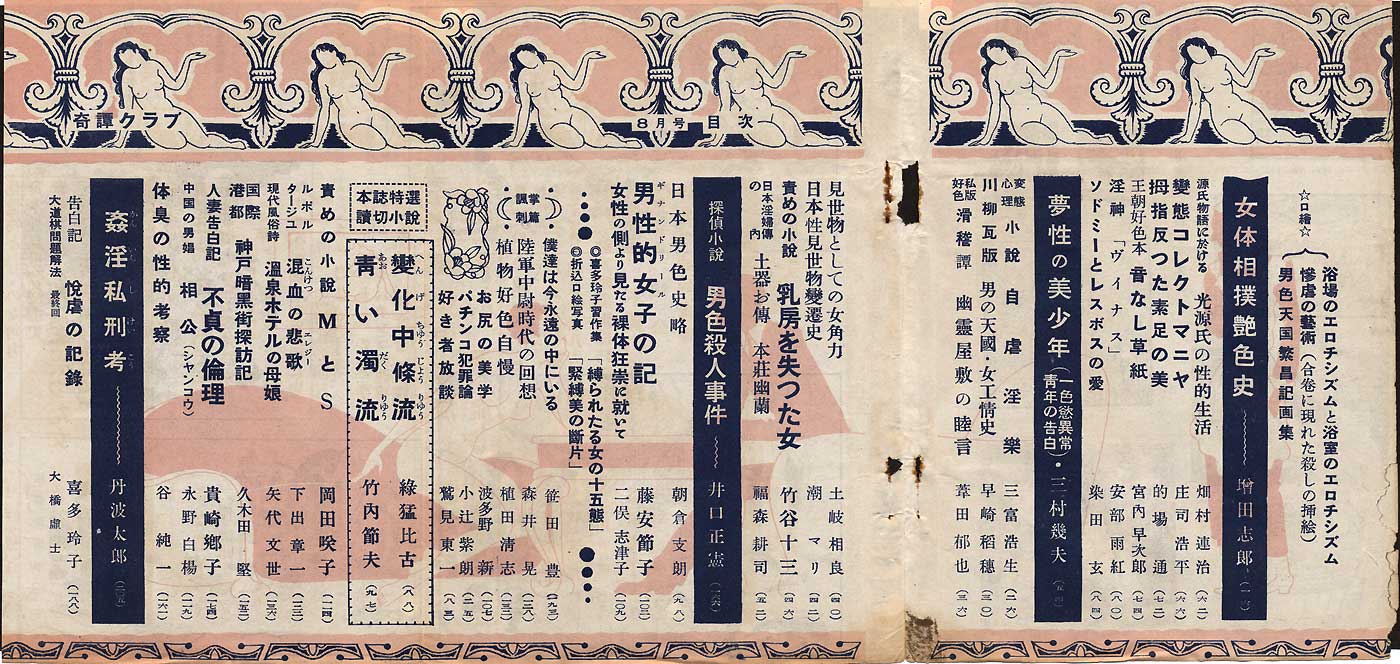 奇譚クラブ 8月号 目次
☆口繪☆
浴場のエロチシズムと浴室のエロチシズム
惨虐の藝術(合巻に現れた殺しの挿絵)
男色天国繁昌記画集
女体相撲艶色史 増田志郎
源氏物語に於ける 光源氏の性的生活 畑村連治 (六二)
變態コレクトマニヤ 庄司浩平 (六六)
拇指反つた素足の美 的場通 (七二)
王朝好色本 音なし草紙 宮内早次郎 (七四)
淫神「ヴイナス」 安部雨紅 (八〇)
ソドミーとレスボスの愛 染田玄 (八四)
夢性の美少年(一色慾異常青年の告白)・三村幾夫 (五四)
変態心理 小說 自虐淫樂 三富浩生 (二六)
川柳瓦版 男の天國・女工情史 早崎稻穗 (三〇)
私版好色 滑稽譚 幽靈屋敷の睦言 葦田郁也 (三六)
見世物としての女角力 土岐相良 (四〇)
日本性見世物變遷史 潮マリ (四二)
責めの小說 乳房を失つた女 竹谷十三 (四六)
日本淫婦傳の內 土器お傳 本莊幽蘭 福森耕司 (五二)
探偵小說 男色殺人事件 井口正憲 (一六六)
日本男色史略 朝倉支朗 (九八)
男性的女子の記 ギナンドリール 藤安節子 (一〇三)
女性の側より見たる裸体狂崇に就いて 二俣志津子 (一〇九)
◎喜多玲子習作集 「縛られたる女の十五態」
◎折込口絵写真 「緊縛美の斷片」
掌篇諷刺
・僕達は今永遠の中にいる 笹田豊 (一九三)
陸軍中尉時代の回想 森井晃 (一二〇)
・植物好色自慢 植田清志 (一三二)
お尻の美学 波多野新 (一〇七)
パチンコ犯罪論 小辻紫朗 (二五)
好き者放談 鷲見東一 (八三)
本誌特選讀切小説
變化中條流 へんげちゆうじようりゆう 綠猛比古 (八八)
靑い濁流 あおだくりゆう 竹內節夫 (九七)
責めの小說MとS 岡田咲子 (一一四)
ルポルタージユ 混血の悲歌 こんけつエレジー 下出章一 (一二八)
現代風俗詩 溫泉ホテルの母娘 矢代文世 (一三六)
国際港都 神戸暗黑街探訪記 久木田堅 (一五二)
人妻告白記 不貞の倫理 貴崎鄕子 (一七四)
中国の男娼 相公(シヤンコウ) 永野白楊 (一一九)
体臭の性的考察 谷純一 (一六一)
姦淫私刑考 かんいんしけいこう 丹波太郎 (二〇五)
告白記 悅虐の記錄 喜多玲子 (一八八)
大道棋問題解法 最終回 大橋虛士